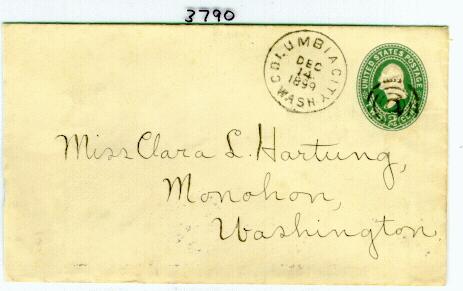 3790
COLUMBIA CITY
DEC
14
1899
WASH
UNITED STATES POSTAGE
Miss Clara L. Hartung,
Monohon,
Washington.